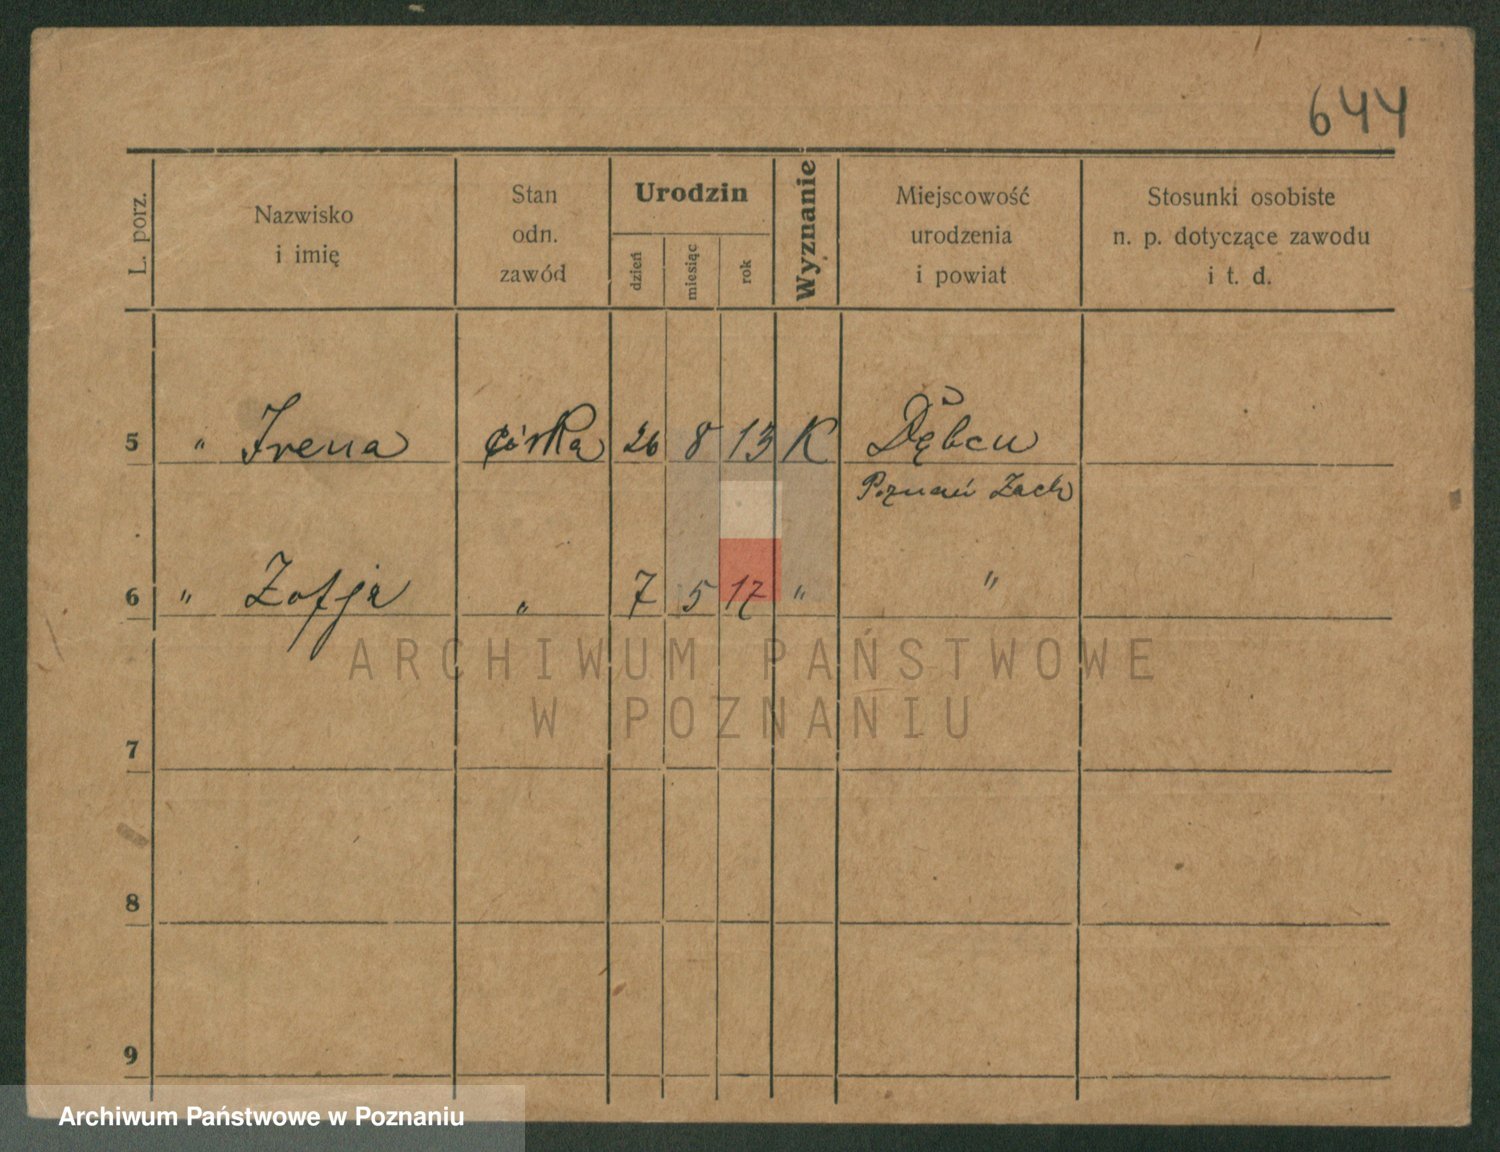 644
L. porz.
Nazwisko
i imię
Stan
odn.
zawód
Urodzin
dzień
miesiąc
rok
Wyznanie
Miejscowość
urodzenia
i powiat
Stosunki osobiste
n. p. dotyczące zawodu
i t. d.
5 " Irena córka 26 8 13 K Dębcu
Poznań Zach
6 " Zofja " 7 5 17 " "
ARCHIWUM PAŃSTWOWE
W POZNANIU
7
8
9
Archiwum Państwowe w Poznaniu